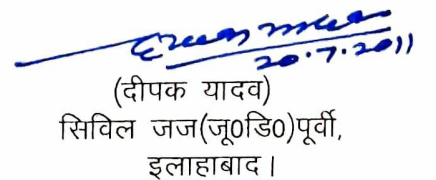 20.7.2011
(दीपक यादव)
सिविल जज(जू0डि0)पूर्वी,
इलाहाबाद।